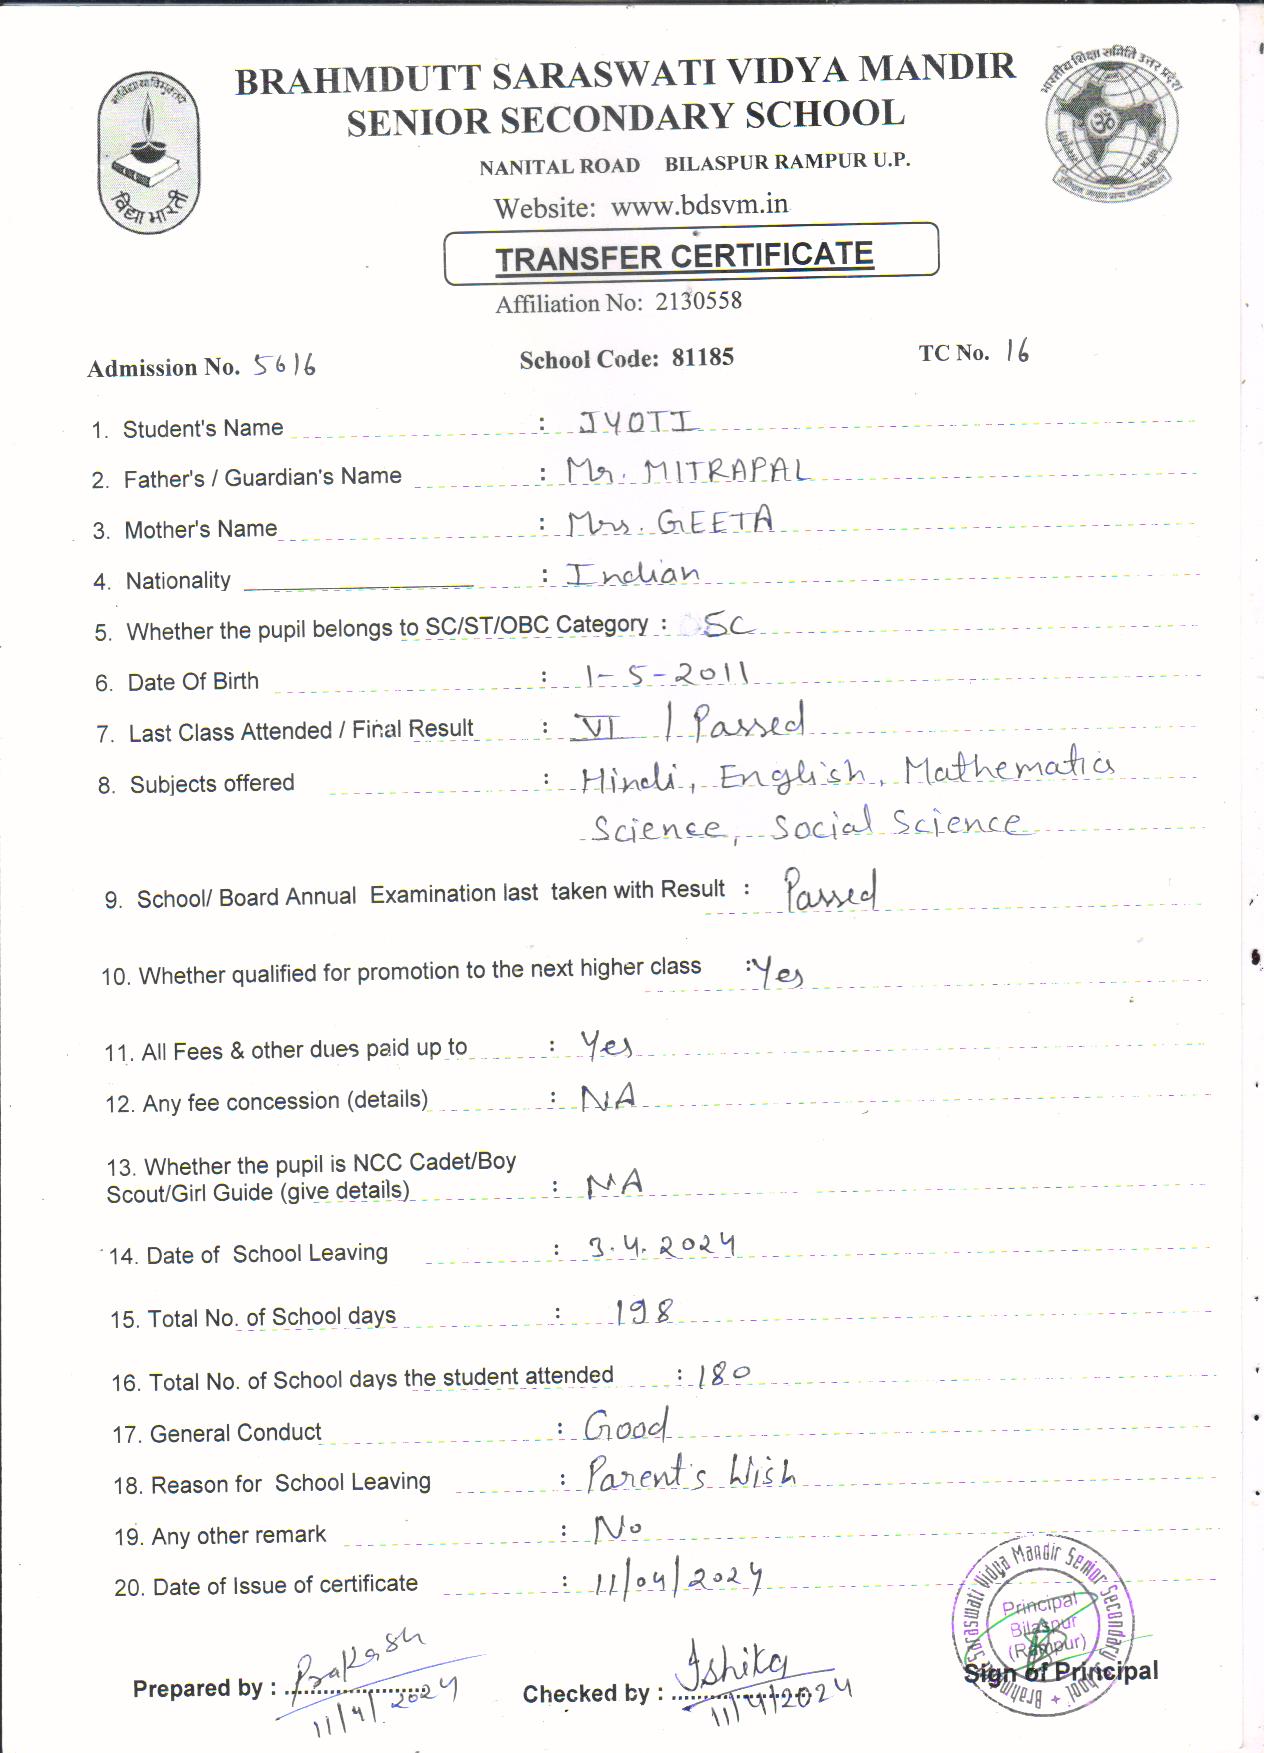 BRAHMDUTT SARASWATI VIDYA MANDIR
SENIOR SECONDARY SCHOOL
NANITAL ROAD BILASPUR RAMPUR U.P.
विद्या भारती
Website: www.bdsvm.in
TRANSFER CERTIFICATE
Affiliation No: 2130558
Admission No. 5616 School Code: 81185 TC No. 16
1. Student's Name : JYOTI
2. Father's / Guardian's Name : Mr. MITRAPAL
3. Mother's Name : Mrs. GEETA
4. Nationality : Indian
5. Whether the pupil belongs to SC/ST/OBC Category : SC
6. Date Of Birth : 1-5-2011
7. Last Class Attended / Final Result : VI / Passed
8. Subjects offered : Hindi, English, Mathematics
Science, Social Science
9. School/ Board Annual Examination last taken with Result : Passed
10. Whether qualified for promotion to the next higher class : Yes
11. All Fees & other dues paid up to : Yes
12. Any fee concession (details) : NA
13. Whether the pupil is NCC Cadet/Boy
Scout/Girl Guide (give details) : NA
14. Date of School Leaving : 3.4.2024
15. Total No. of School days : 198
16. Total No. of School days the student attended : 180
17. General Conduct : Good
18. Reason for School Leaving : Parent's Wish
19. Any other remark : No
20. Date of Issue of certificate : 11/04/2024
Principal
Bilaspur
(Rampur)
Prepared by : Prakash Checked by : Ishika Sign of Principal
11/4/2024 11/4/2024